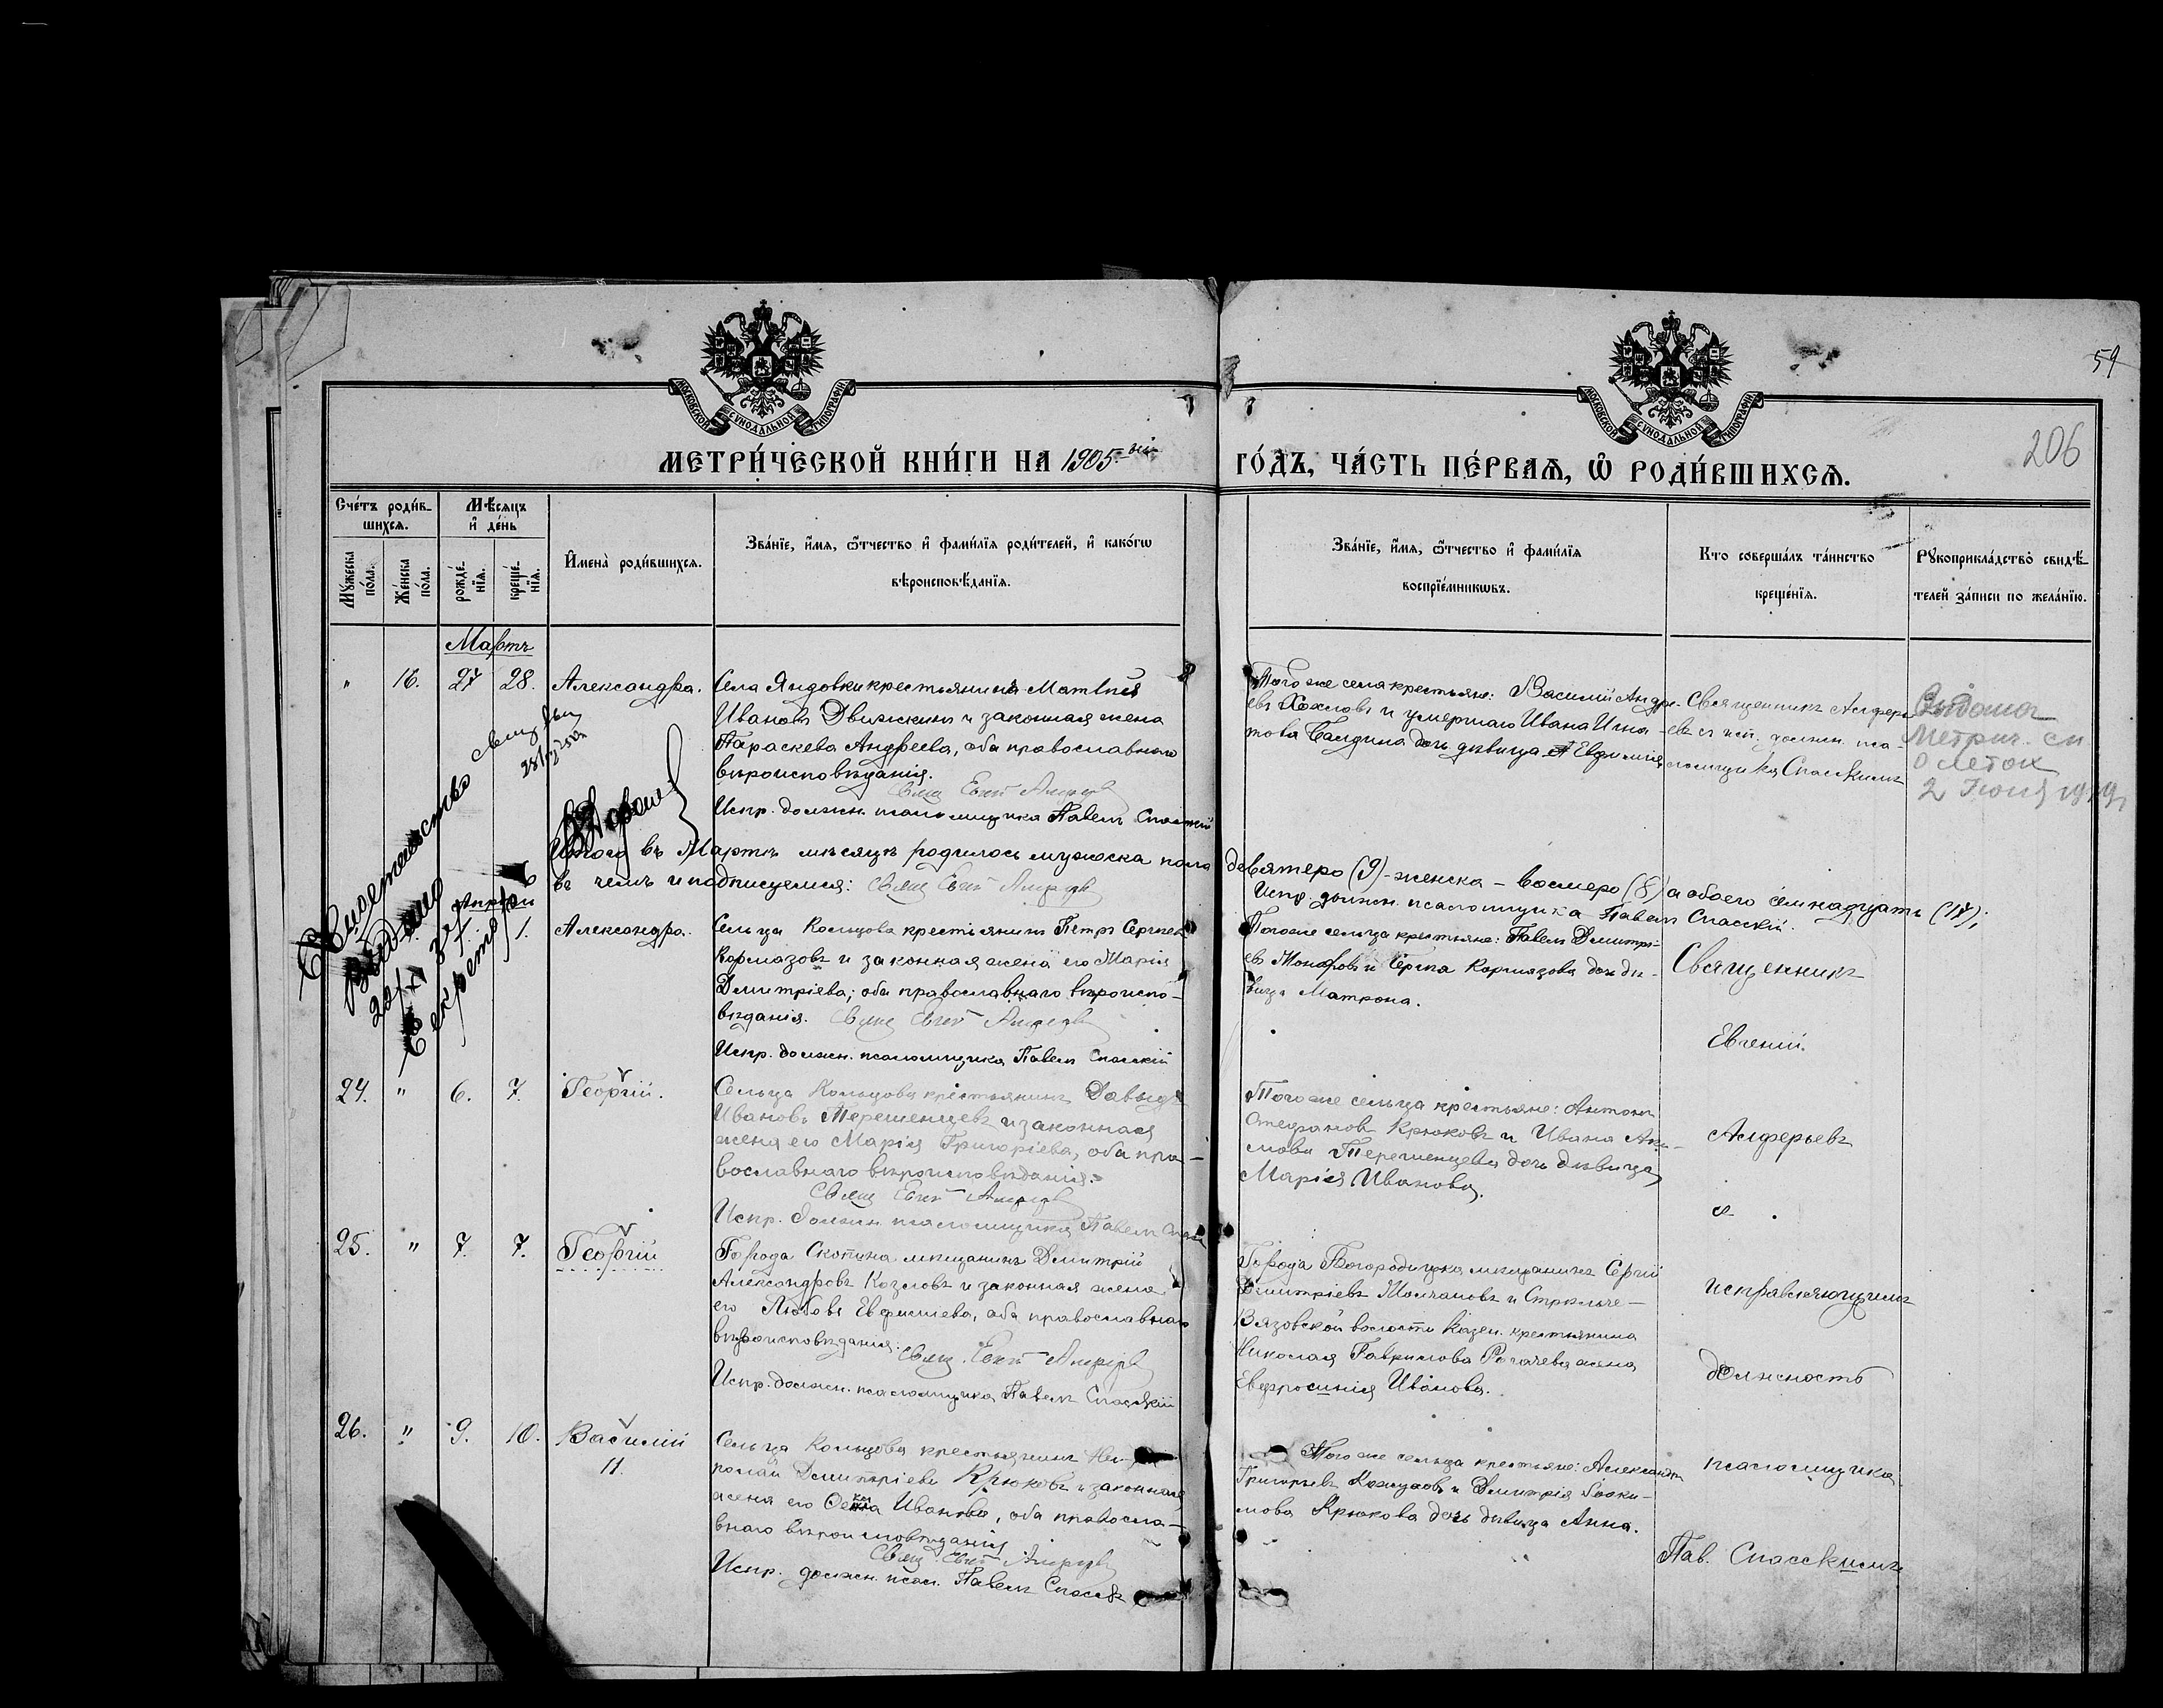 59
206
МОСКОВСКОЙ СѴНОДАЛЬНОЙ ТИПОГРАФІИ
МОСКОВСКОЙ СѴНОДАЛЬНОЙ ТИПОГРАФІИ
МЕТРИ́ЧЕСКОЙ КНИ́ГИ НА 1905 ГО́ДЪ, ЧА́СТЬ ПЕ́РВАѦ, Ѡ҆ РОДИ́ВШИХСѦ.
Сче́тъ роди́в-
шихсѧ.
Мѣ́сѧцъ
и҆ де́нь
Мꙋ́жеска по́ла.
Же́нска по́ла.
рожде́-
нїѧ.
креще́-
нїѧ.
И҆мена̀ роди́вшихсѧ.
Зва́нїе, и҆́мѧ, ѻ҆́тчество и҆ фами́лїѧ роди́телей, и҆ како́гѡ
вѣроисповѣ́данїѧ.
Зва́нїе, и҆́мѧ, ѻ҆́тчество и҆ фами́лїѧ
воспрїе́мникѡвъ.
Кто соверша́лъ та́инство
креще́нїѧ.
Рꙋкоприкла́дство свидѣ́-
телей за́писи по жела́нїю.
Мартъ
" 16. 27 28. Александра.
Села Яндовки крестьянинъ Матвѣй
Ивановъ Движкинъ и законная жена
Параскева Андреева, оба православнаго
вѣроисповѣданія.
Испр. должн. псаломщика Павелъ Спасскій
Того же села крестьяне: Василій Андре-
евъ Хохловъ и умершаго Ивана
дочь дѣвица Евфимія
Священникъ
псаломщика Спасскимъ
Выдана
Метрич. сп
2 Іюня
Свидетельство
Выдано
Секретарь
Итого въ Мартѣ мѣсяцѣ родилось мужеска пола девятеро (9) - женска - восмеро (8) а обоего семнадцать (17);
въ чемъ и подписуемся:
Испр. должн. псаломщика Павелъ Спасскій.
1. Александра.
Сельца Кольцова крестьянинъ Петръ Сергѣевъ
Кормазовъ и законная жена его Марія
Дмитріева; оба православнаго вѣроиспо-
вѣданія.
Испр. должн. псаломщика Павелъ Спасскій
Того же сельца крестьяне: Павелъ Дмитрі-
евъ и Сергѣя Кормазова дочь дѣ-
вица Матрона.
Священникъ
Евгеній
24. " 6. 7. Георгій.
Сельца Кольцова крестьянинъ Давыдъ
Ивановъ Терешенцевъ и законная
жена его Марія Григоріева, оба пра-
вославнаго вѣроисповѣданія.
Испр. должн. псаломщика Павелъ
Того же сельца крестьяне: Антонъ
Стефановъ Крюковъ и Ивана Аки-
мова Терешенцева дочь дѣвица
Марія Иванова.
Алферьевъ
съ
25. " 7. 7. Георгій
Города Скопина мѣщанинъ Дмитрій
Александровъ Козловъ и законная жена
его Любовь Евфимиева, оба православнаго
вѣроисповѣданія.
Испр. должн. псаломщика Павелъ Спасскій
Города Богородицка мѣщанинъ Сергій
Дмитріевъ Молчановъ и Стрѣльче-
Вязовской волости Казен. крестьянина
Николая Гаврилова Рогачева жена
Евфросинія Иванова.
исправляющимъ
должность
26. " 9. 10. Василій
11.
Сельца Кольцова крестьянинъ
Дмитріевъ Крюковъ и законная
жена его Иванова, оба правосла-
внаго вѣроисповѣданія
Испр. должн. псал. Павелъ Спасск
Того же сельца крестьяне: Александръ
Григорьевъ и Дмитрія
Крюкова дочь дѣвица Анна.
псаломщика
Пав. Спасскимъ